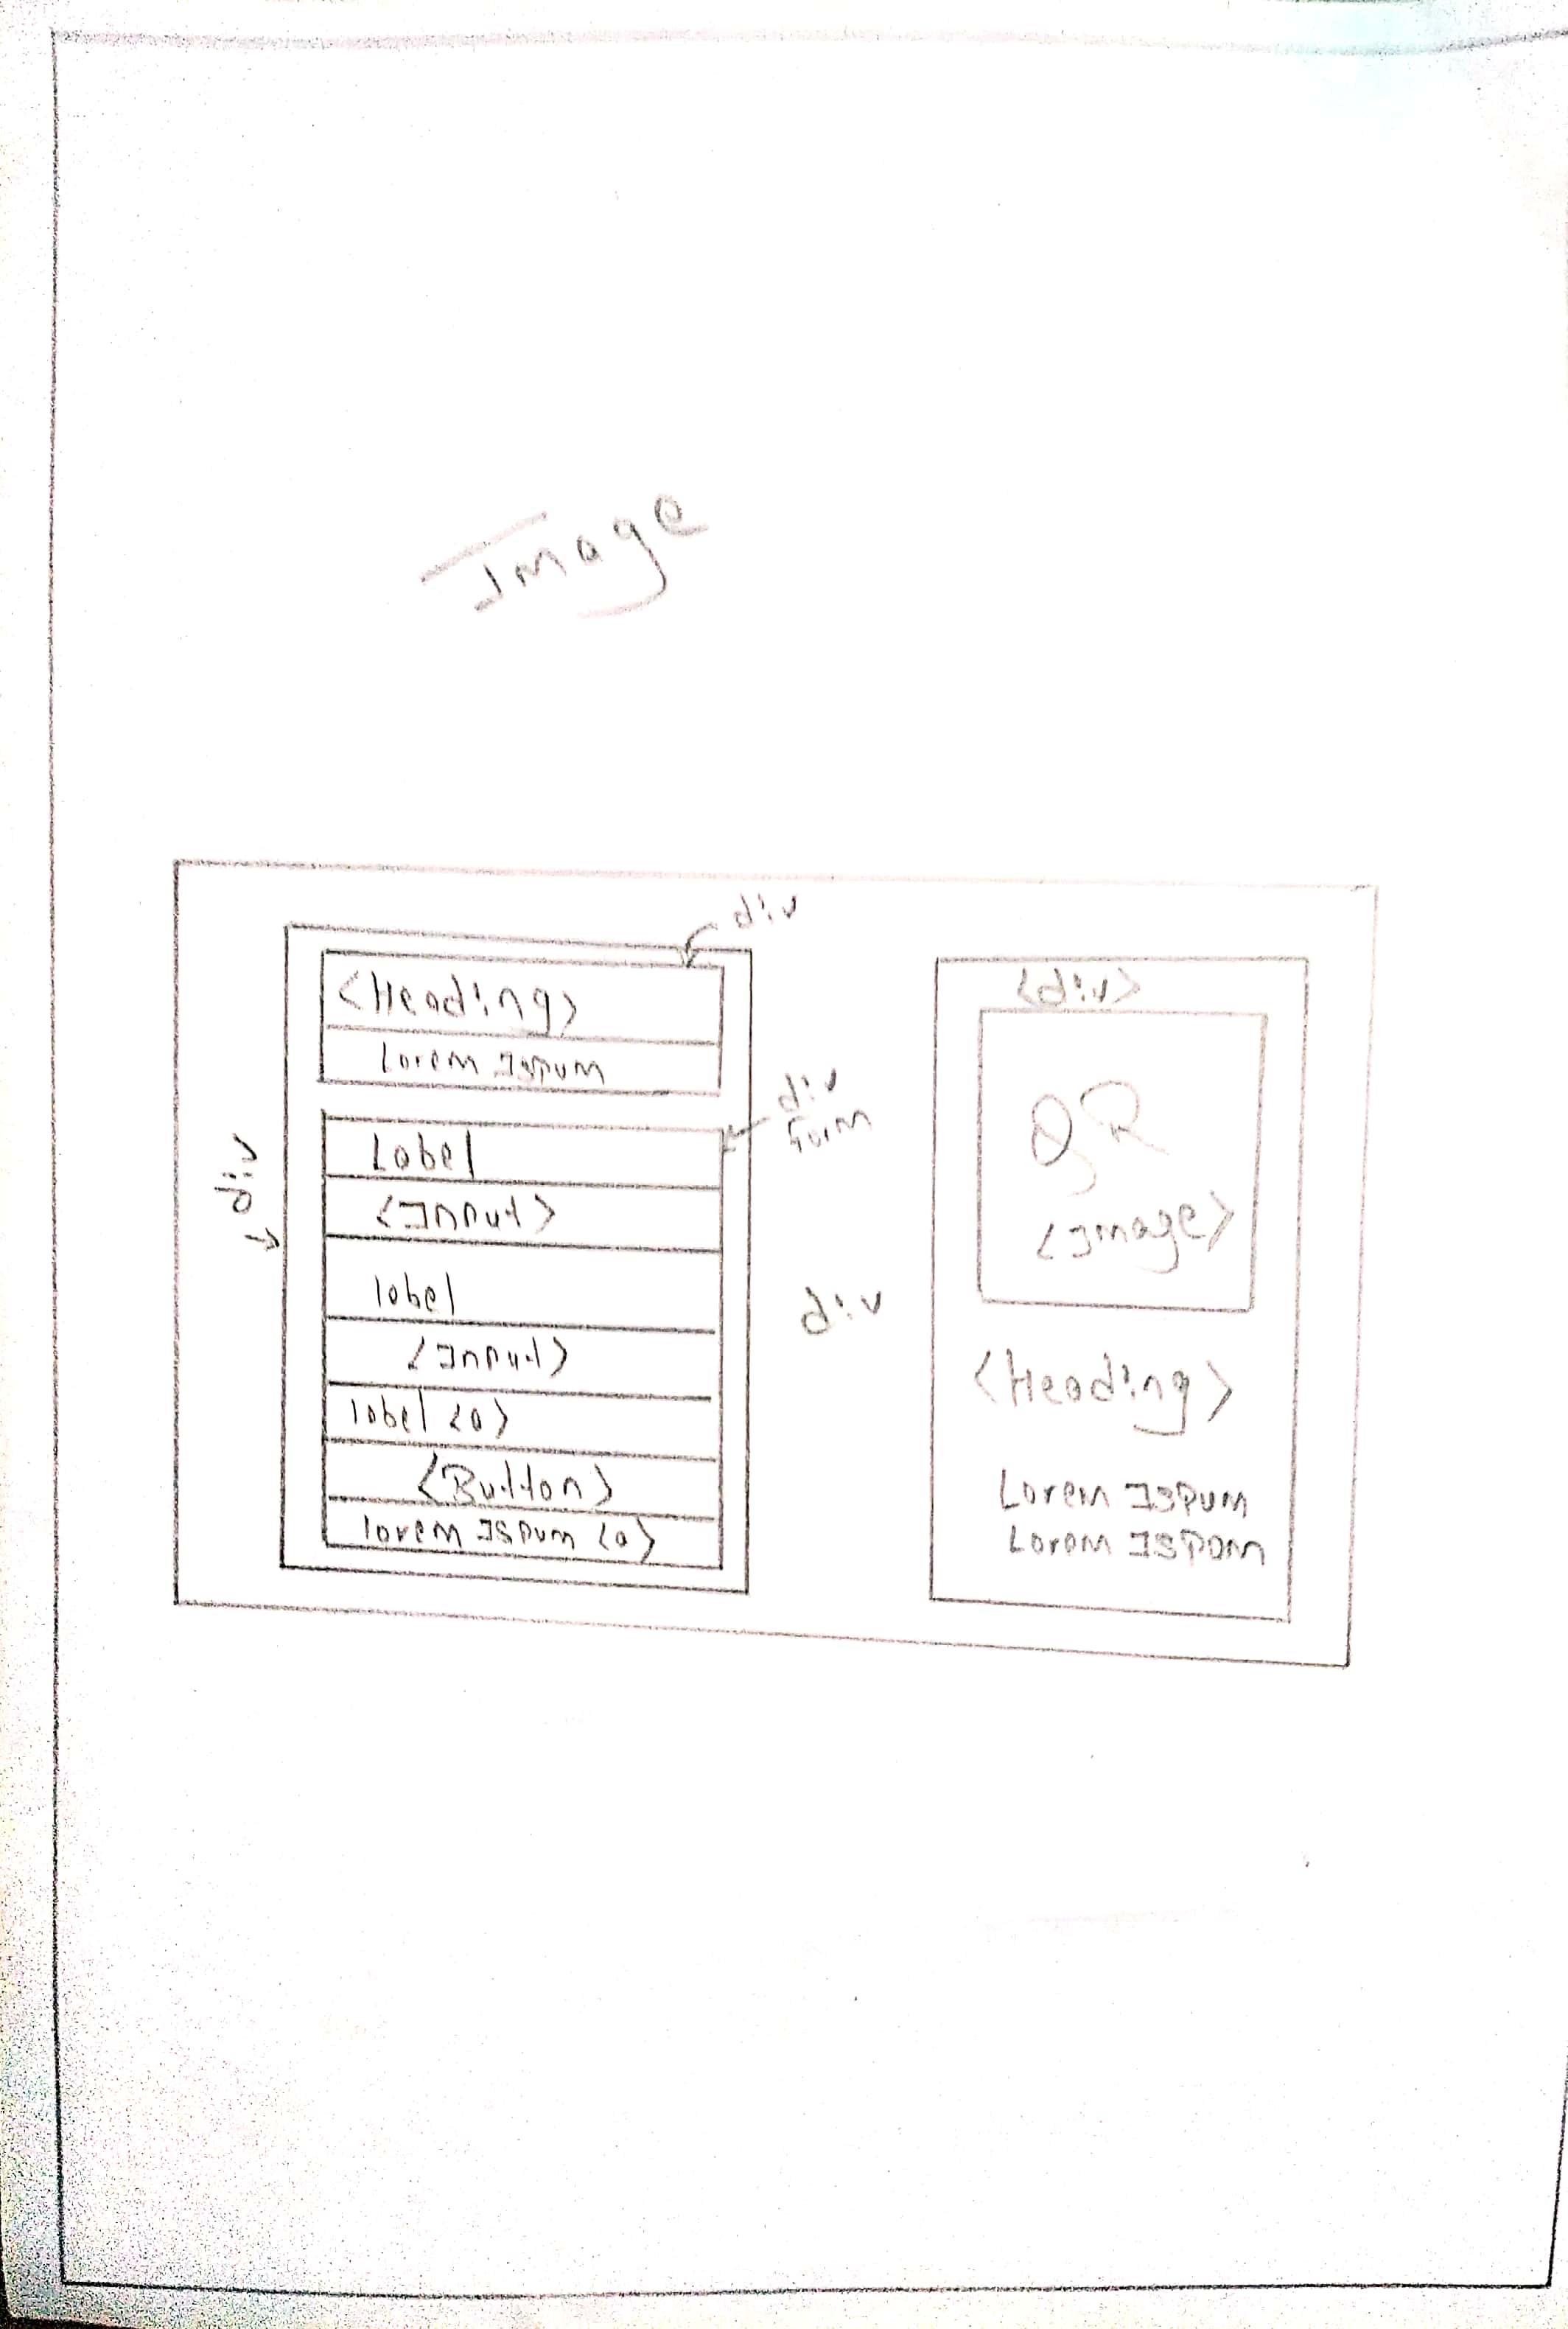 Image
div
<Heading>
Lorem Ispum
div
form
Label
<Input>
label
<Input>
label <a>
<Button>
lorem Ispum <a>
div
div
<div>
QR
<Image>
<Heading>
Lorem Ispum
Lorem Ispum